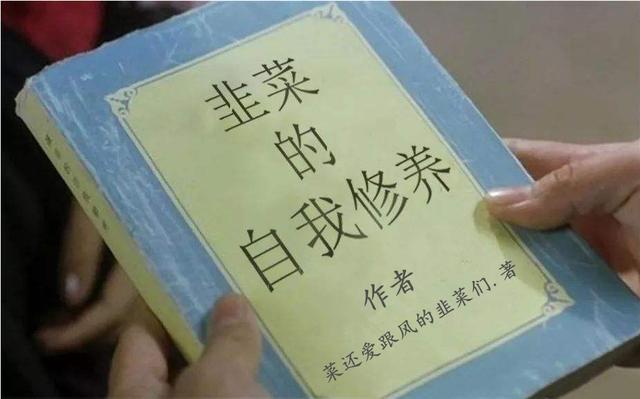 韭菜
的
自我修养
作者
菜还爱跟风的韭菜们.著